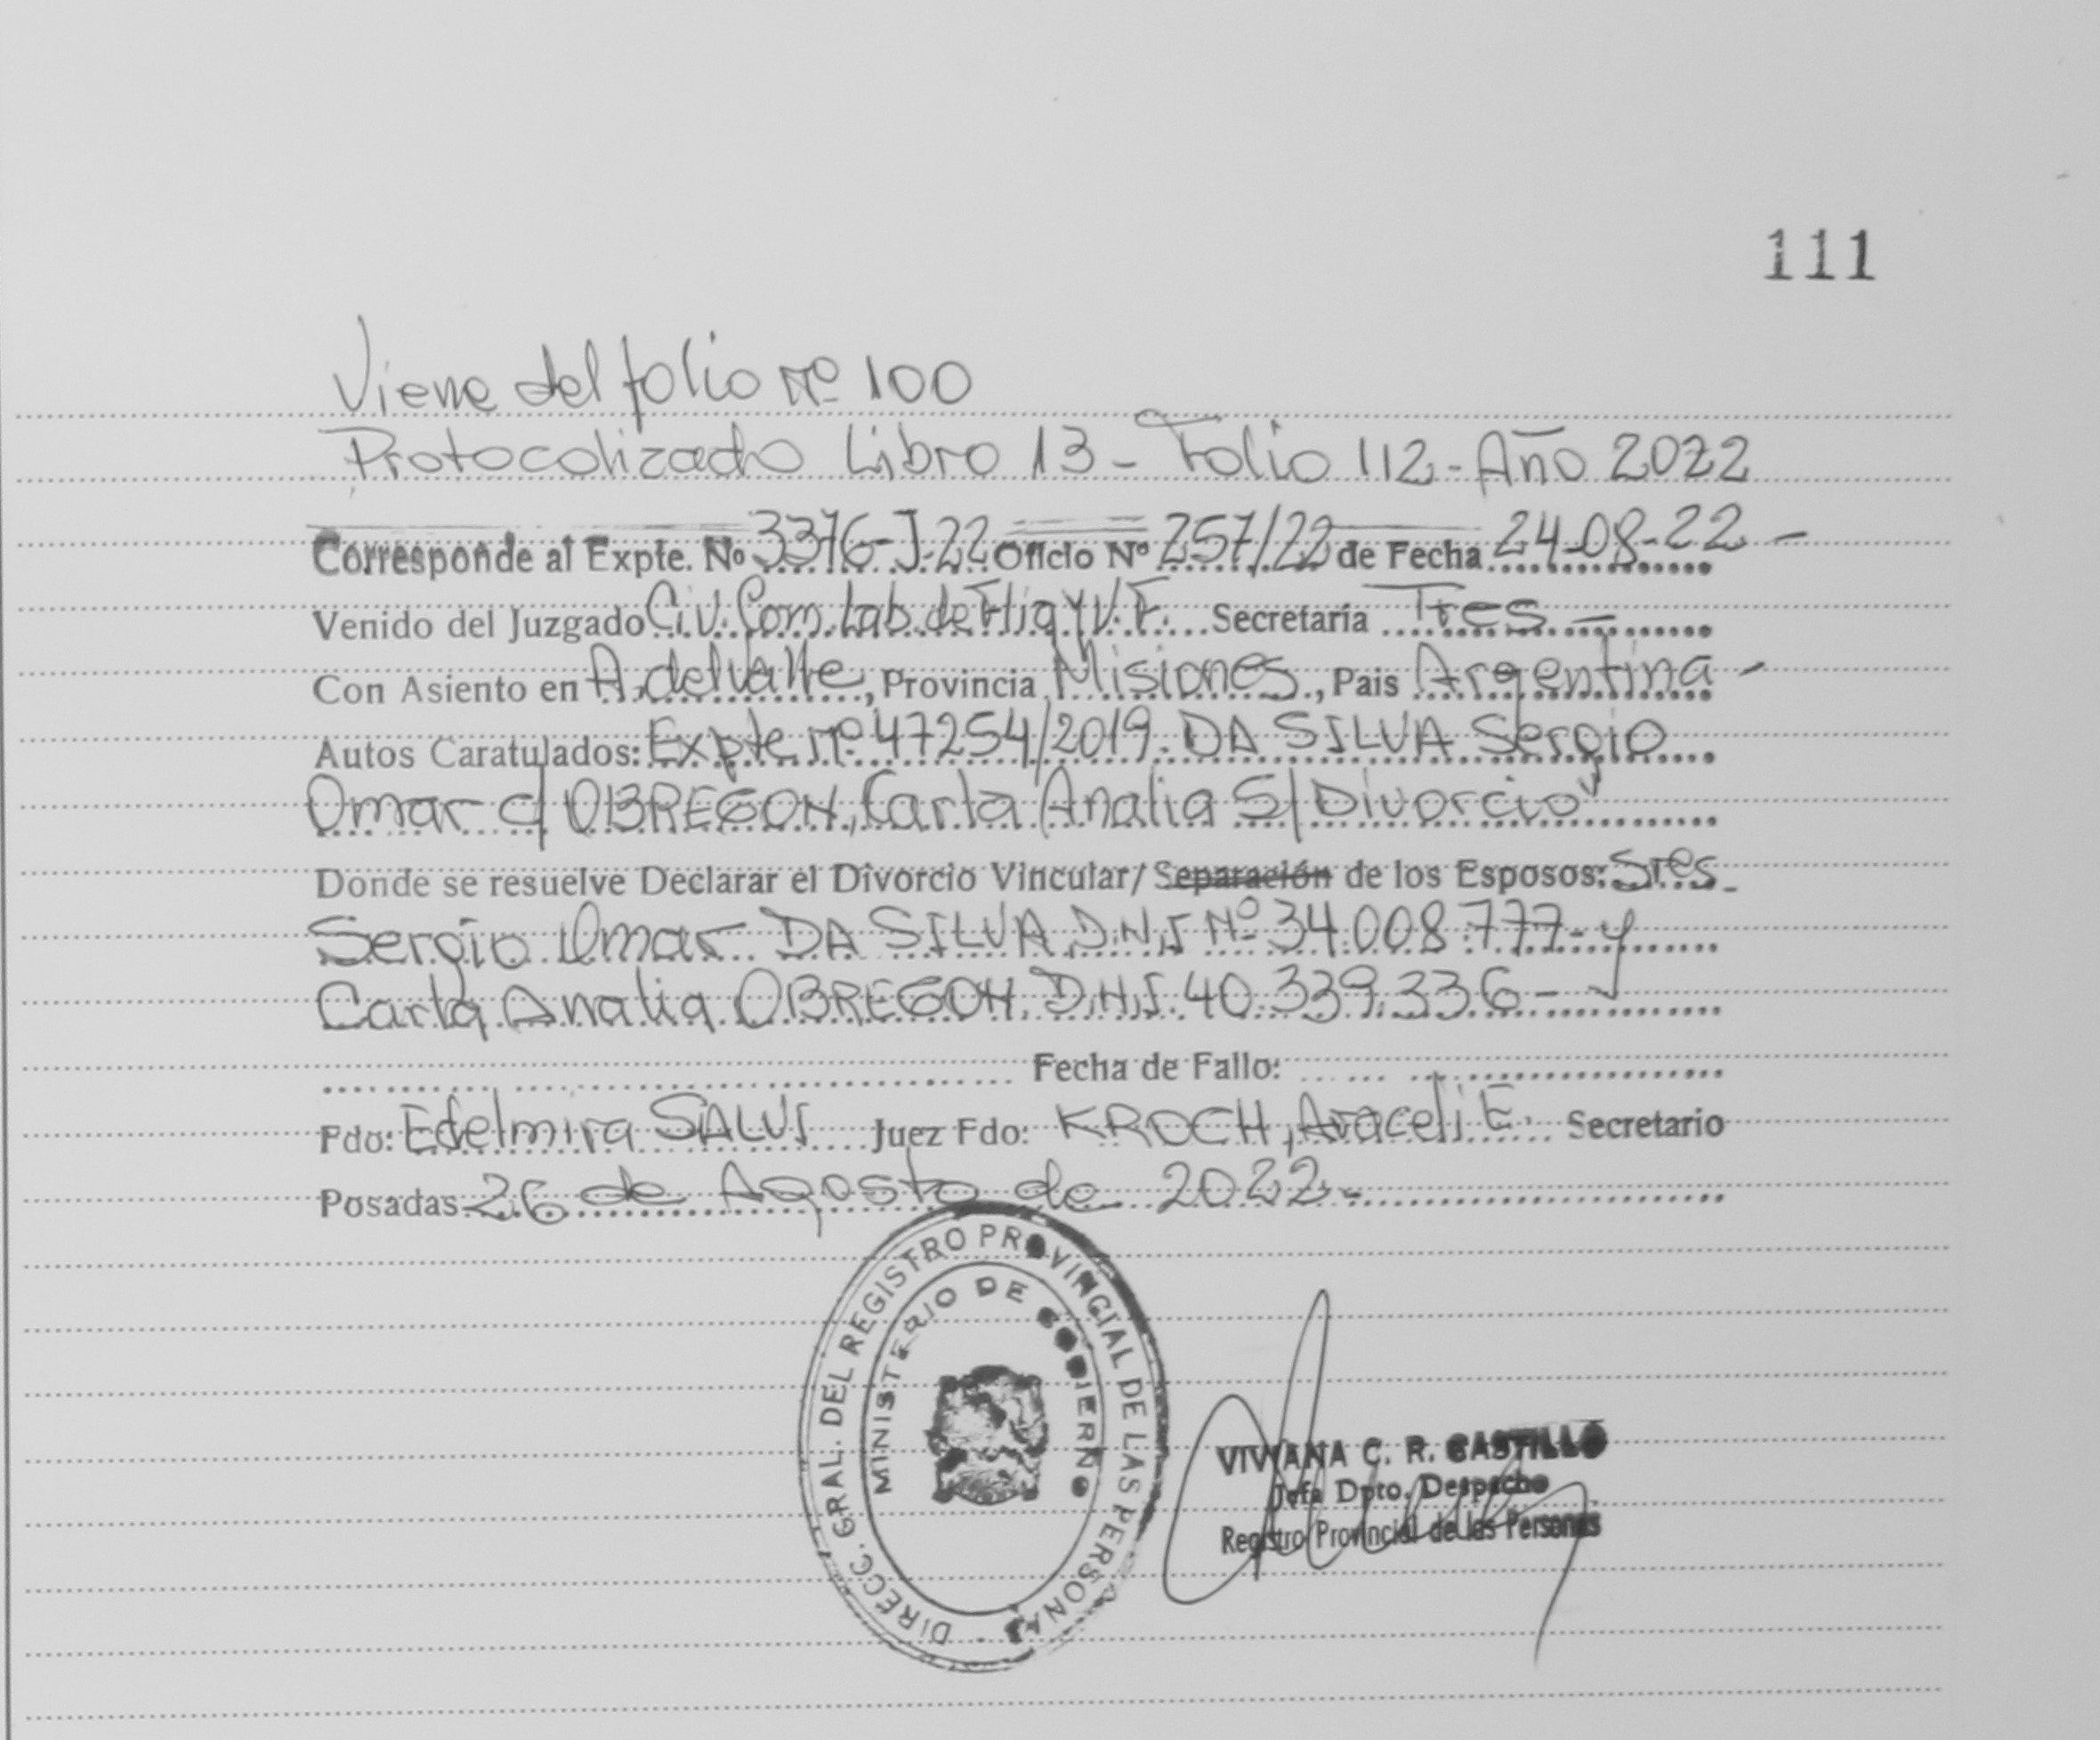 111
Viene del folio Nº 100
Protocolizado Libro 13 - Folio 112 - Año 2022
Corresponde al Expte. Nº 3376-J-22 Oficio Nº 257/22 de Fecha 24-08-22 -
Venido del Juzgado Civ. Com. Lab. de Flia y V. F. Secretaría Tres -
Con Asiento en A. del Valle, Provincia Misiones, Pais Argentina -
Autos Caratulados: Expte Nº 47254/2019. DA SILVA Sergio
Omar c/ OBREGON, Carla Analia S/ Divorcio"
Donde se resuelve Declarar el Divorcio Vincular/ Separación de los Esposos: Sres
Sergio Omar DA SILVA, D.N.I Nº 34.008.777 - y
Carla Analia OBREGON. D.N.I. 40.339.336 -
Fecha de Fallo:
Fdo: Edelmira SALUS Juez Fdo: KROCH, Araceli E. Secretario
Posadas 26 de Agosto de 2022 -
DIRECC. GRAL. DEL REGISTRO PROVINCIAL DE LAS PERSONAS
MINISTERIO DE GOBIERNO
VIVIANA C. R. CASTILLO
Jefa Dpto. Despacho
Registro Provincial de las Personas